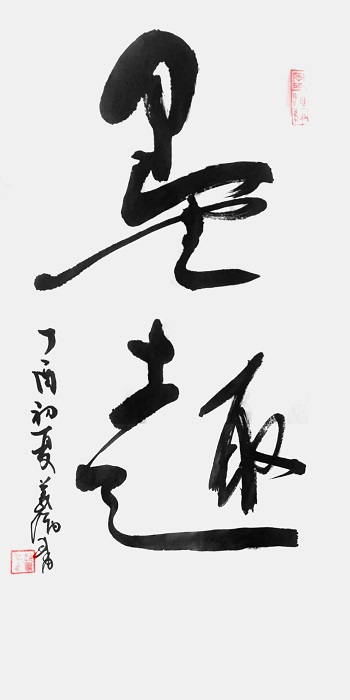 墨趣
丁酉初夏